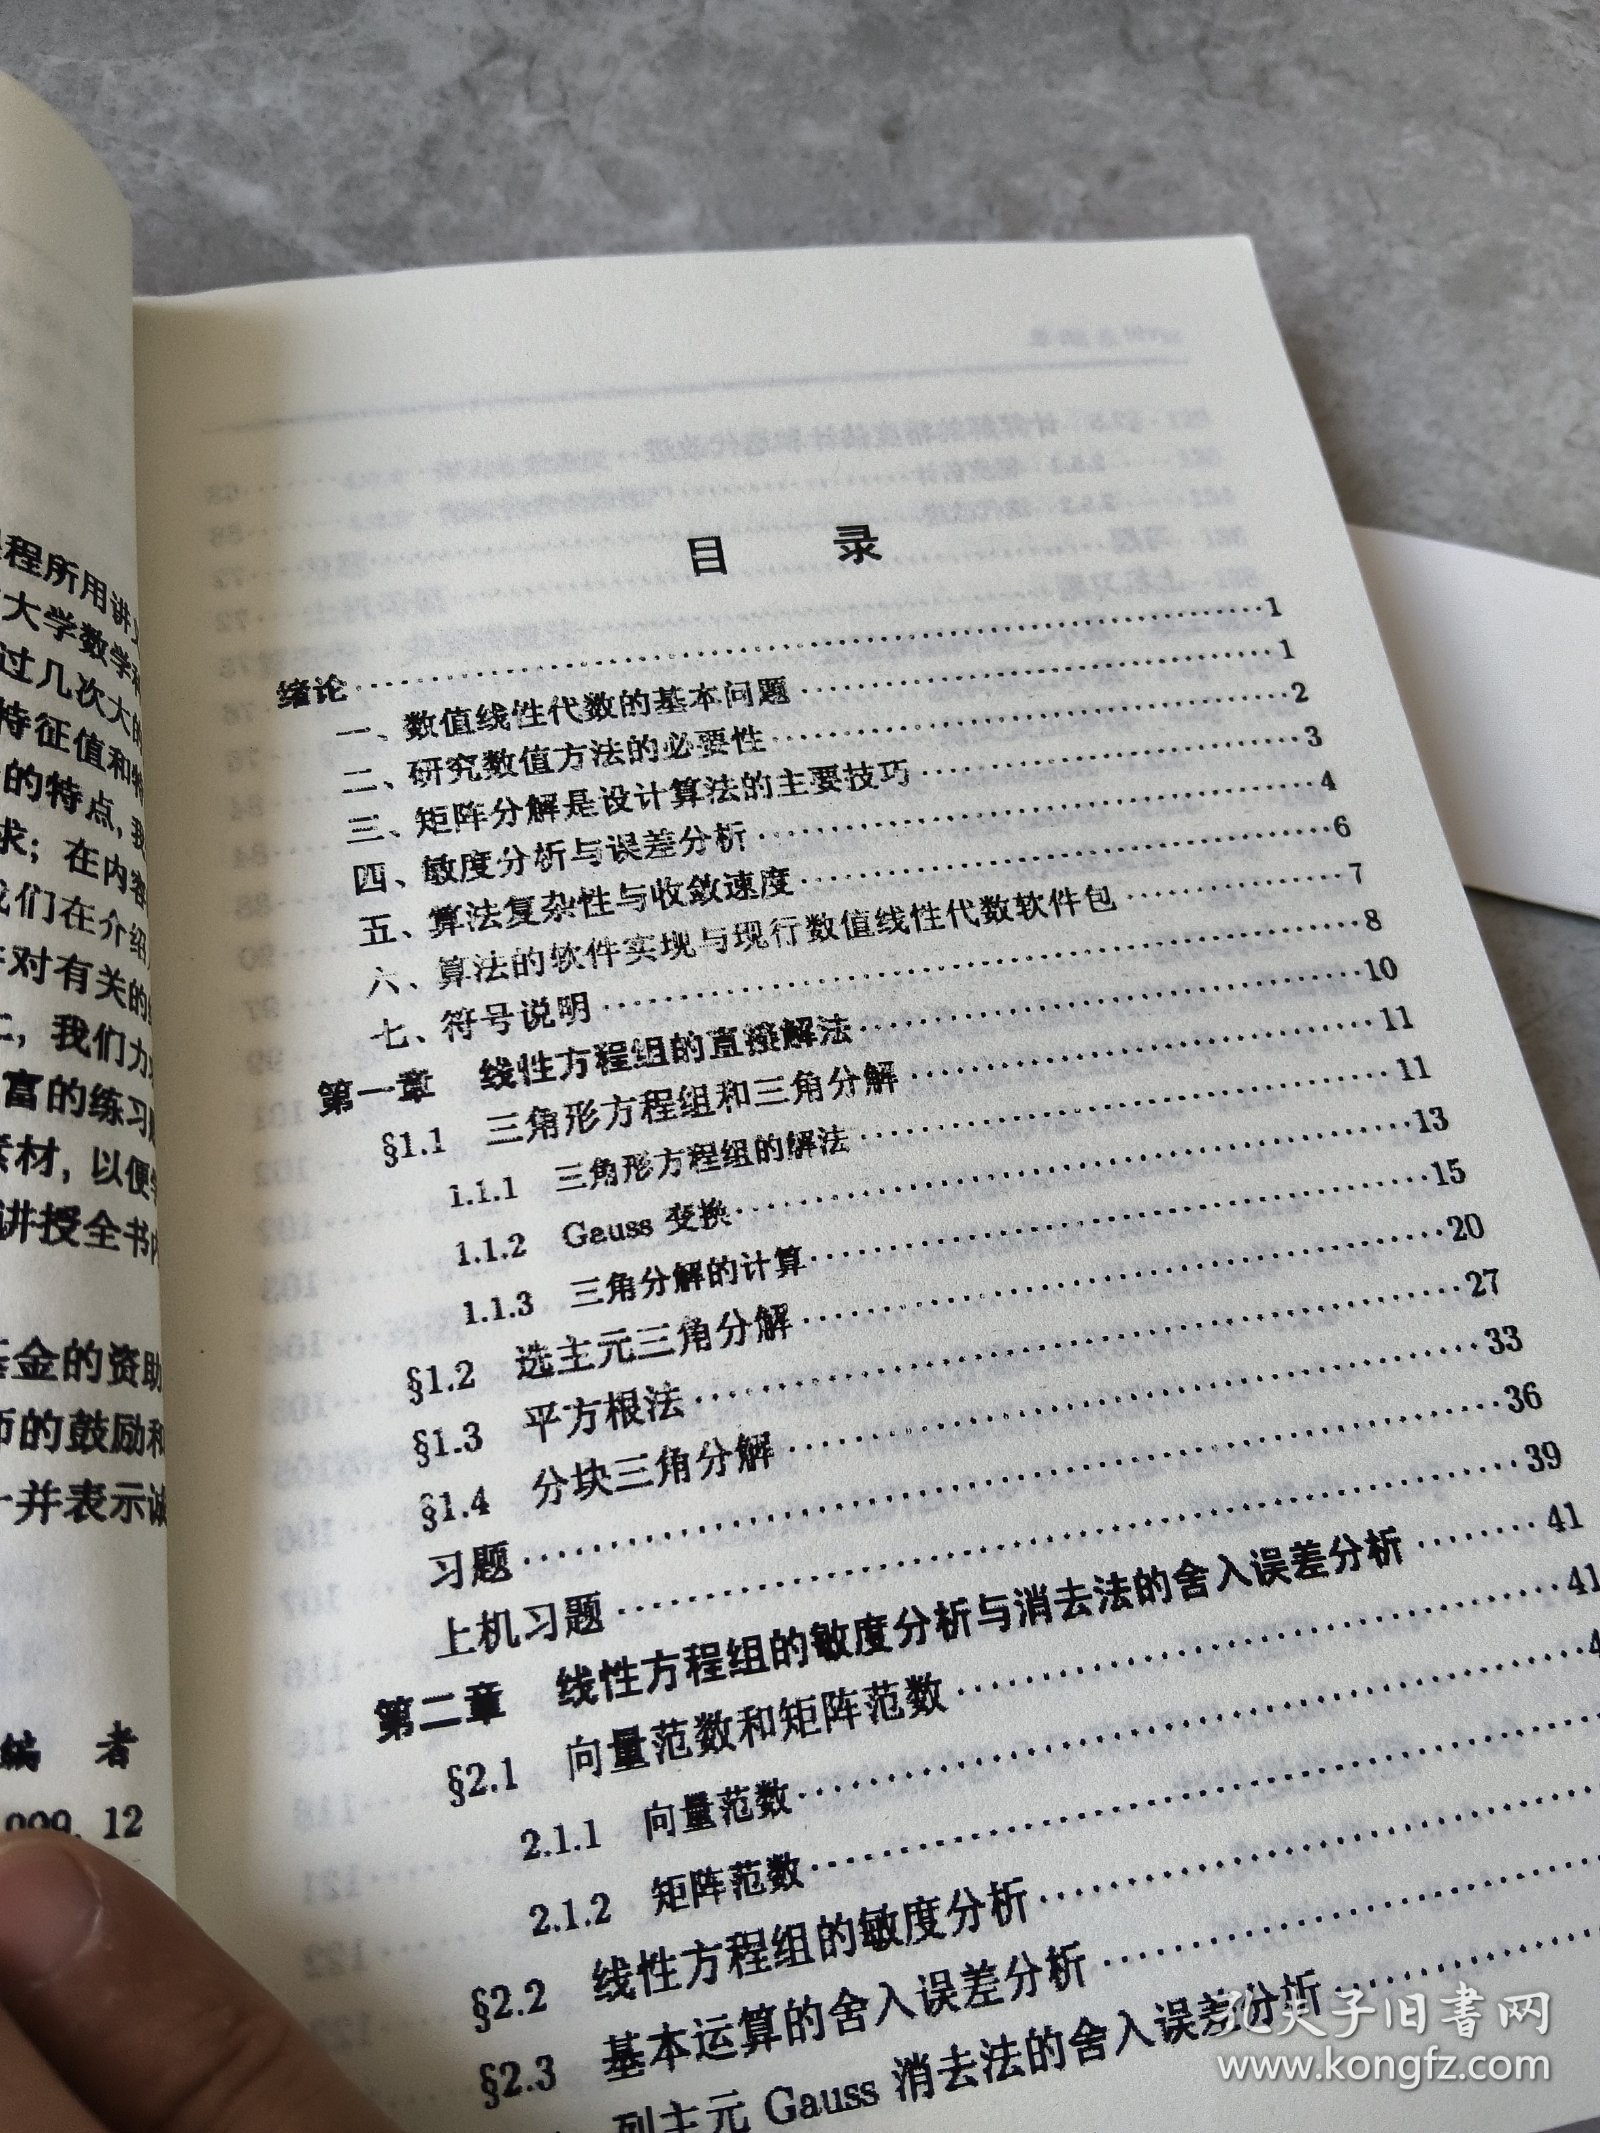 程所用讲
大学数学和
过几次大的
特征值和特
的特点,我
求；在内容
我们在介绍
对有关的
上，我们力
富的练习题
素材，以便
讲授全书内
基金的资助
师的鼓励和
一并表示诚
编 者
1999. 12
目 录
绪论 1
一、数值线性代数的基本问题 1
二、研究数值方法的必要性 2
三、矩阵分解是设计算法的主要技巧 3
四、敏度分析与误差分析 4
五、算法复杂性与收敛速度 6
六、算法的软件实现与现行数值线性代数软件包 7
七、符号说明 8
第一章 线性方程组的直接解法 10
§1.1 三角形方程组和三角分解 11
1.1.1 三角形方程组的解法 11
1.1.2 Gauss 变换 13
1.1.3 三角分解的计算 15
§1.2 选主元三角分解 20
§1.3 平方根法 27
§1.4 分块三角分解 33
习题 36
上机习题 39
第二章 线性方程组的敏度分析与消去法的舍入误差分析 41
§2.1 向量范数和矩阵范数 41
2.1.1 向量范数 4
2.1.2 矩阵范数
§2.2 线性方程组的敏度分析
§2.3 基本运算的舍入误差分析
列主元 Gauss 消去法的舍入误差分析
孔夫子旧书网
www.kongfz.com